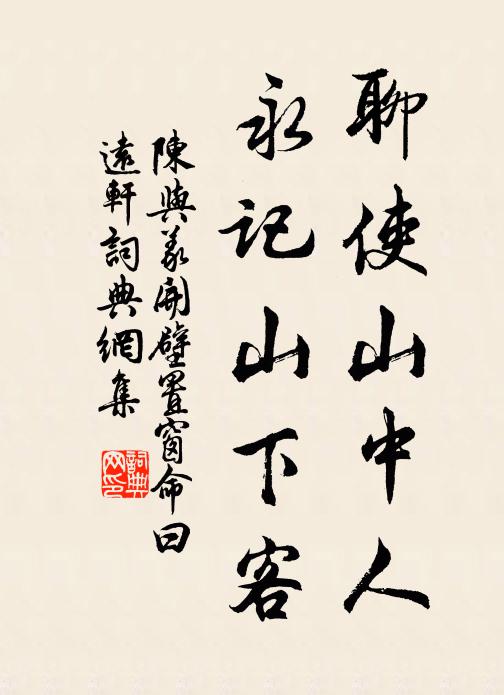 聊使山中人
永记山下客
陳與義開壁置窗命曰
遠軒詞典網集
詞典
网印